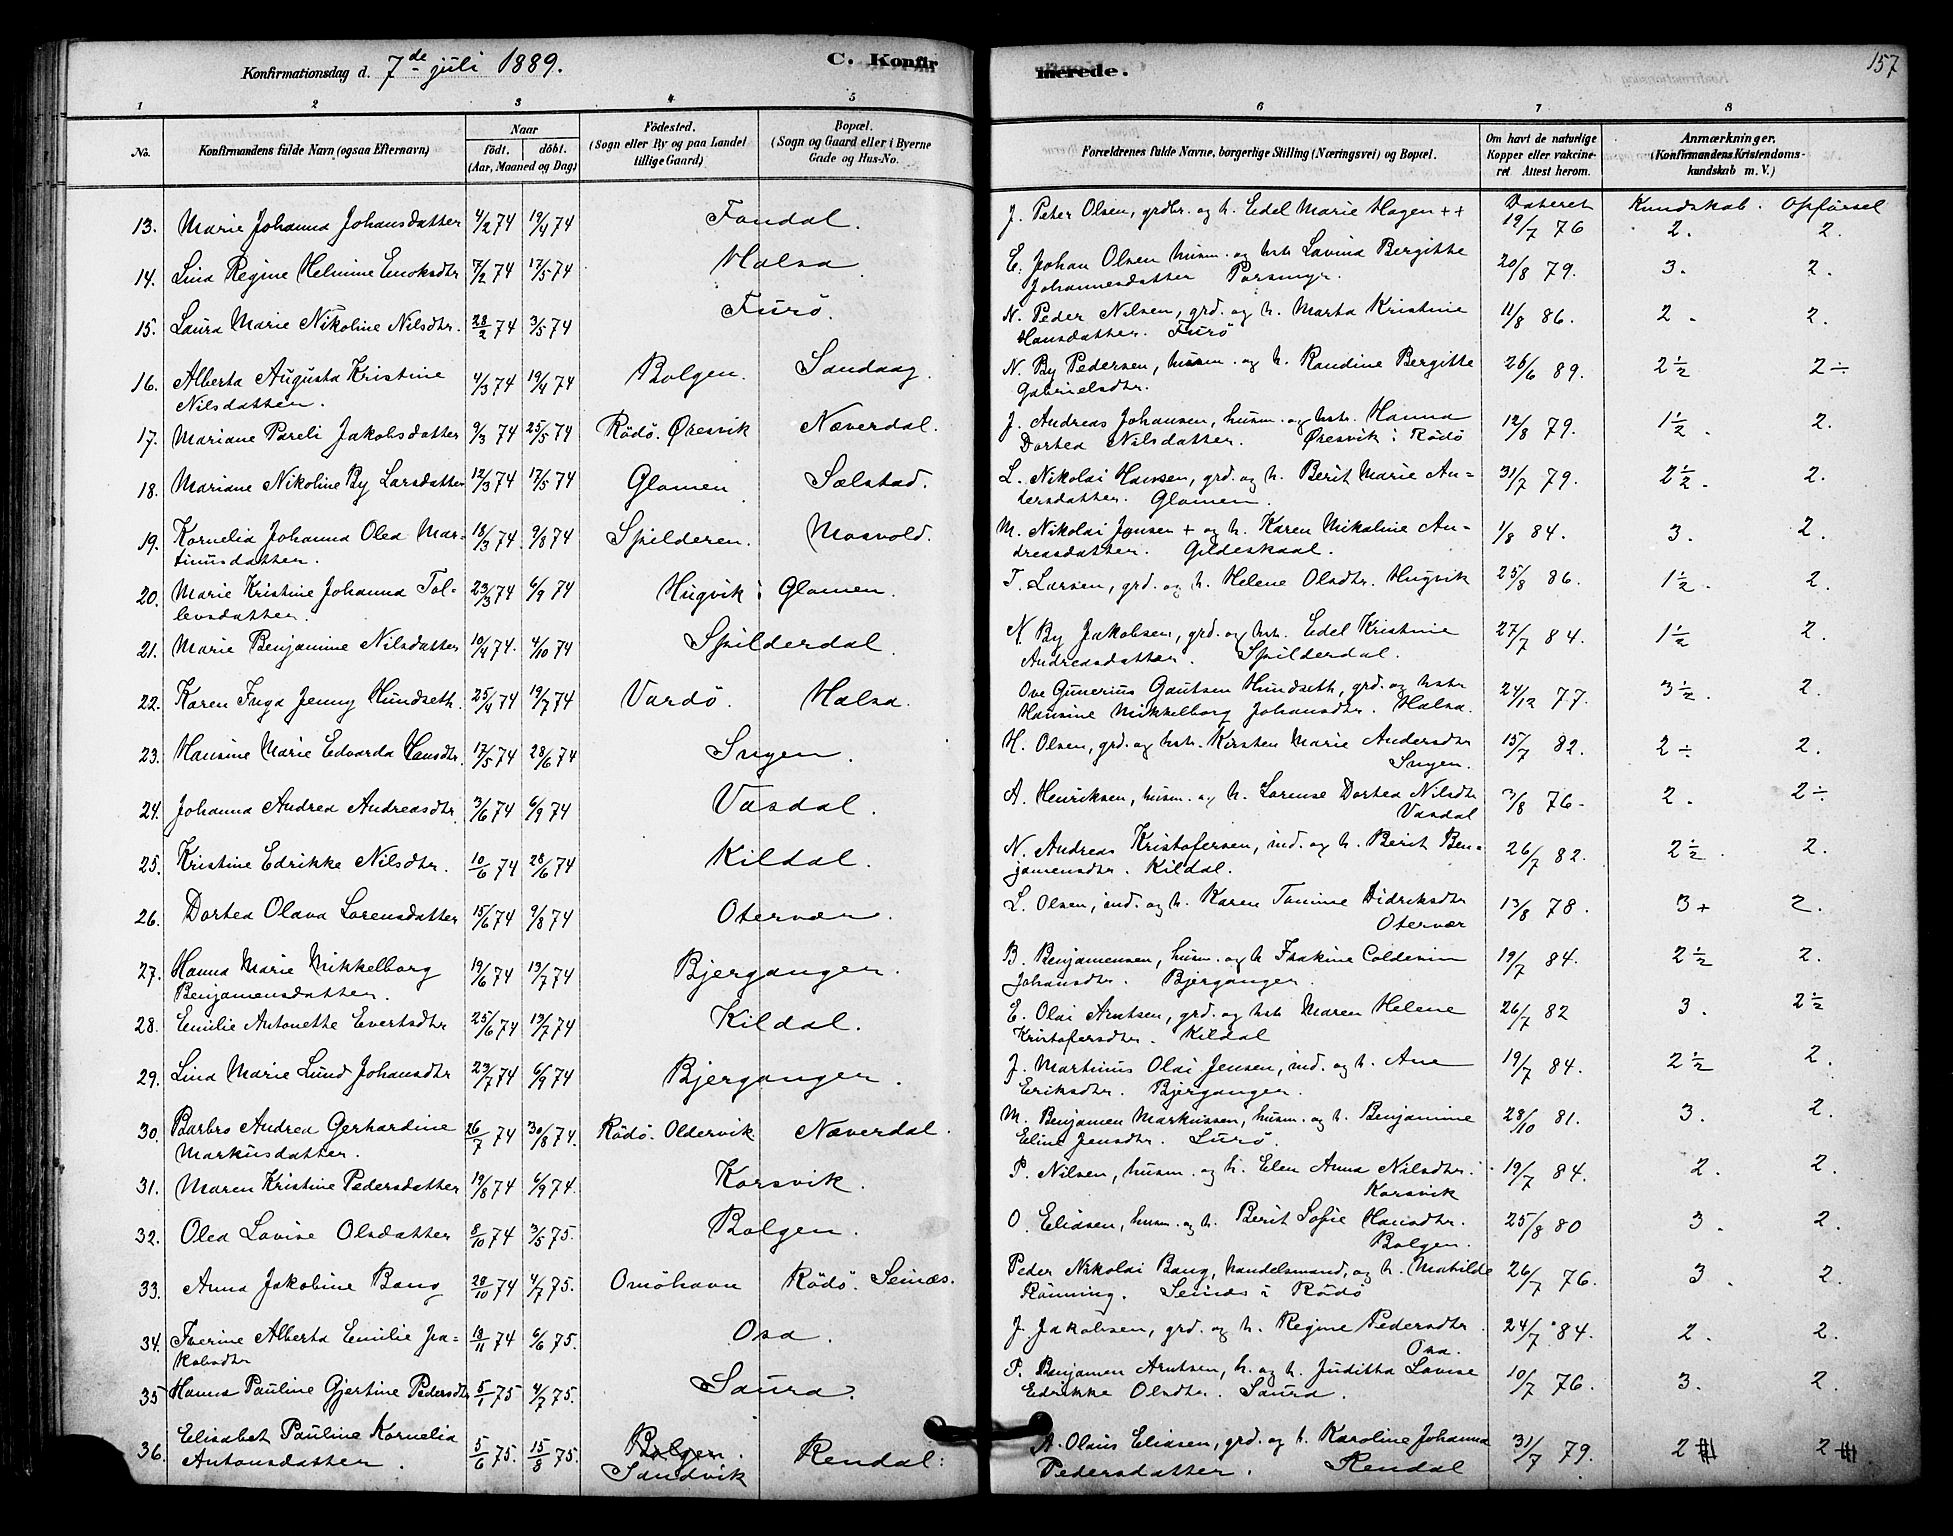 Konfirmationsdag d. 7de juli 1889. C. Konfirmerede. 157
1 2 3 4 5 6 7 8
No. Konfirmandens fulde Navn (ogsaa Efternavn) Naar födt. döbt. (Aar, Maaned og Dag) Födested. (Sogn eller By og paa Landet tillige Gaard) Bopæl. (Sogn og Gaard eller i Byerne Gade og Hus-No. Forældrenes fulde Navne, borgerlige Stilling (Næringsvei) og Bopæl. Om havt de naturlige Kopper eller vakcineret Attest herom. Anmærkninger, (Konfirmandens Kristendomskundskab m. V.)
Dateret Kundskab. Opförsel
13. Marie Johanna Johansdatter 4/2 74 19/4 74 Fondal. J. Peter Olsen, grdbr. og h. Edel Marie Hagen ++ 19/7 76 2. 2.
14. Lina Regine Helmine Enoksdtr 7/2 74 17/5 74 Halsa E. Johan Olsen husm. og hstr Lovina Bergitte
Johannesdatter Porsmyr. 20/8 79. 3. 2.
15. Laura Marie Nikoline Nilsdtr. 28/2 74 3/5 74 Furö. N. Peder Nilsen, grd. og h. Marta Kristine
Hansdatter. Furö 11/8 86. 2. 2.
16. Alberta Augusta Kristine
Nilsdatter. 4/3 74 19/4 74 Bolgen. Sandaag. N. By Pedersen, husm. og h. Randine Bergitte
Gabrielsdtr. 26/6 89. 2½ 2÷
17. Mariane Pareli Jakobsdatter 9/3 74 25/5 74 Rödö. Øresvik Næverdal. J. Andreas Johansen, husm. og hstr. Hanna
Dortea Nilsdatter. Øresvik i Rödö 12/8 79. 1½. 2.
18. Mariane Nikoline By Larsdatter 12/3 74 17/5 74 Glomen Sælstad. L. Nikolai Hansen, grd. og h. Berit Marie An-
dersdatter. Glomen. 31/7 79. 2½. 2.
19. Kornelia Johanna Olea Mar-
tinusdatter. 18/3 74 9/8 74 Spilderen. Mosvold. M. Nikolai Jensen + og h. Karen Nikoline An-
dreasdatter. Gildeskaal. 1/8 84. 3. 2.
20. Marie Kristine Johanna Tol-
levsdatter. 23/3 74 6/9 74 Hugvik i Glomen. T. Larsen, grd. og h. Helene Olsdtr. Hugvik 25/8 86. 1½. 2.
21. Marie Benjamine Nilsdatter 10/4 74. 4/10 74 Spilderdal. N. By Jakobsen, grd. og hstr. Edel Kristine
Andreasdatter. Spilderdal. 27/7 84. 1½ 2.
22. Karen Inga Jenny Hundseth. 25/4 74 19/7 74 Vardö. Halsa. Ove Gunerius Gautsen Hundseth, grd. og hstr
Hansine Mikkelborg Johansdtr. Halsa. 24/12 77. 3½. 2.
23. Hansine Marie Edvarda Hansdtr. 17/5 74 28/6 74 Ingen. H. Olsen, grd. og hstr. Kirsten Marie Andersdtr
Ingen. 15/7 82. 2÷ 2.
24. Johanna Andrea Andreasdtr. 3/6 74 6/9 74 Vasdal. A. Henriksen, husm. og h. Lorense Dortea Nilsdtr
Vasdal 3/8 76. 2. 2÷
25. Kristine Edrikke Nilsdtr. 10/6 74 28/6 74 Kildal. N. Andreas Kristofersen, ind. og h. Berit Ben-
jamensdtr. Kildal. 26/7 82. 2½. 2.
26. Dortea Olava Lorensdatter 15/6 74 9/8 74 Otervær. L. Olsen, ind. og h. Karen Tomine Didriksdtr
Otervær 13/8 78. 3+ 2.
27. Hanna Marie Mikkelborg
Benjamensdatter. 19/6 74 13/7 74 Bjergangen. B. Benjamensen, husm. og h Coldevin
Johansdtr. Bjergangen. 19/7 84. 2½ 2.
28. Emilie Antonette Evertsdtr 25/6 74 13/7 74 Kildal. E. Olai Arntsen, grd. og hstr Maren Helene
Kristofersdtr. Kildal 26/7 82 3. 2½
29. Lina Marie Lund Johansdtr 23/7 74 6/9 74 Bjergangen. J. Martinus Olai Jensen, ind. og h. Ane
Eriksdtr. Bjergangen. 19/7 84. 2½ 2.
30. Barbro Andrea Gerhardine
Markusdatter. 26/7 74 30/8 74. Rödö. Oldervik Næverdal. M. Benjamen Markussen, husm. og h. Benjamine
Eline Jensdtr. Lurö. 28/10 81. 3. 2.
31. Maren Kristine Pedersdatter 19/8 74 6/9 74. Korsvik. P. Nilsen, husm. og h. Elen Anna Nilsdtr.
Korsvik 19/7 84. 2. 2.
32. Olea Lovise Olsdatter 8/10 74 3/5 75. Bolgen. O. Eliasen, husm. og h. Berit Sofie Hansdtr.
Bolgen. 25/8 80 3. 2.
33. Anna Jakobine Bang 28/10 74 4/7 75. Omöhavn Rödö. Seinæs. Peder Nikolai Bang, handelsmand, og h. Matilde
Rönning. Seinæs i Rödö 26/7 76. 3. 2.
34. Iverine Alberta Emilie Ja-
kobsdtr 13/11 74 6/6 75. Osa. J. Jakobsen, grd. og h. Regine Pedersdtr.
Osa. 24/7 84. 2. 2.
35 Hanna Pauline Gjertine Pedersdtr 5/1 75 4/7 75. Saura. P. Benjamen Arntsen, h. og h. Juditha Lovise
Edrikke Olsdtr. Saura. 10/7 76. 3. 2.
36. Elisabet Pauline Kornelia
Antonsdatter. 5/6 75. 15/8 75. Bolgen.
Sandvik Rendal: A. Olaus Eliasen, grd. og h. Karoline Johanna
Pedersdatter. Rendal 31/7 79. 2 2